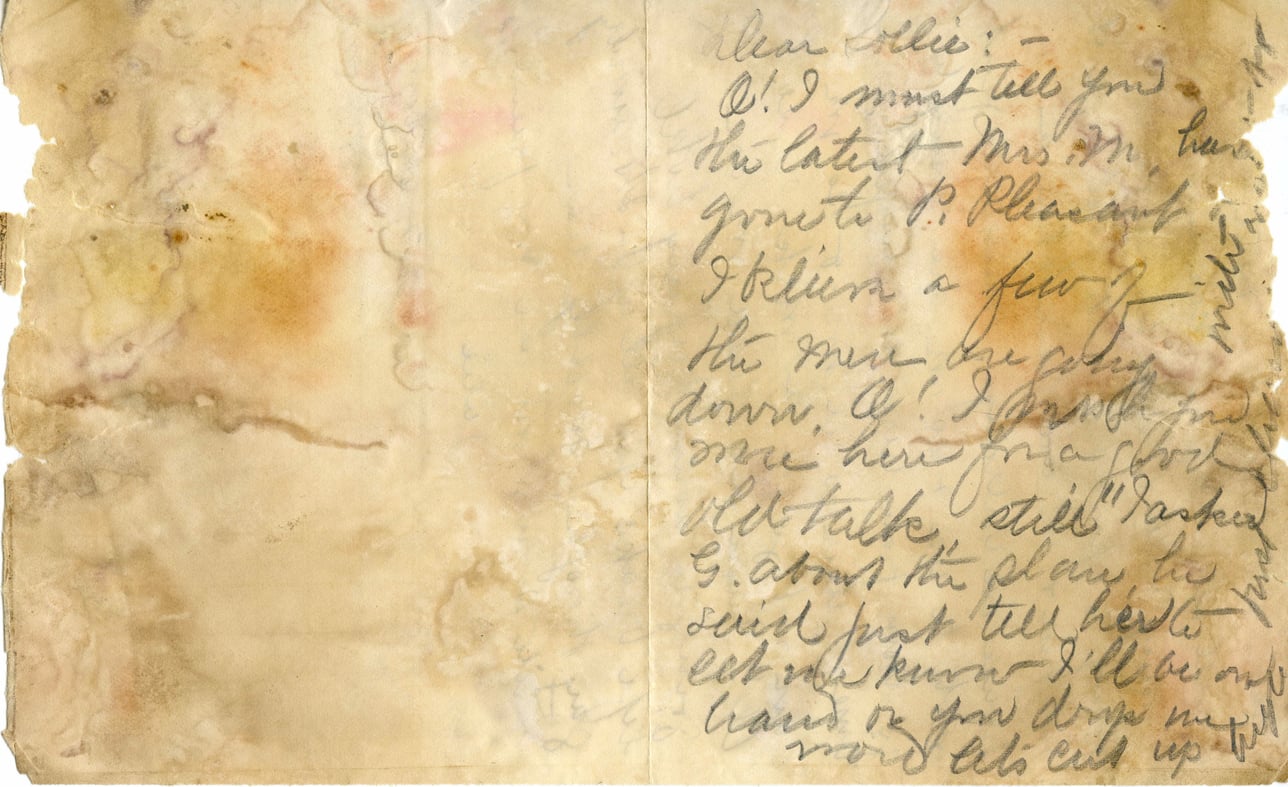 Dear Lollie: -
O! I must tell you
the latest Mrs. M. have
gone to P. Pleasant
I believe a few of
the men are going
down. O! I wish you
were here for a good
old talk, still "I asked
G. about the he
said just tell her to
let me know I'll be on
hand or you drop me
word let's cut up
just
tell